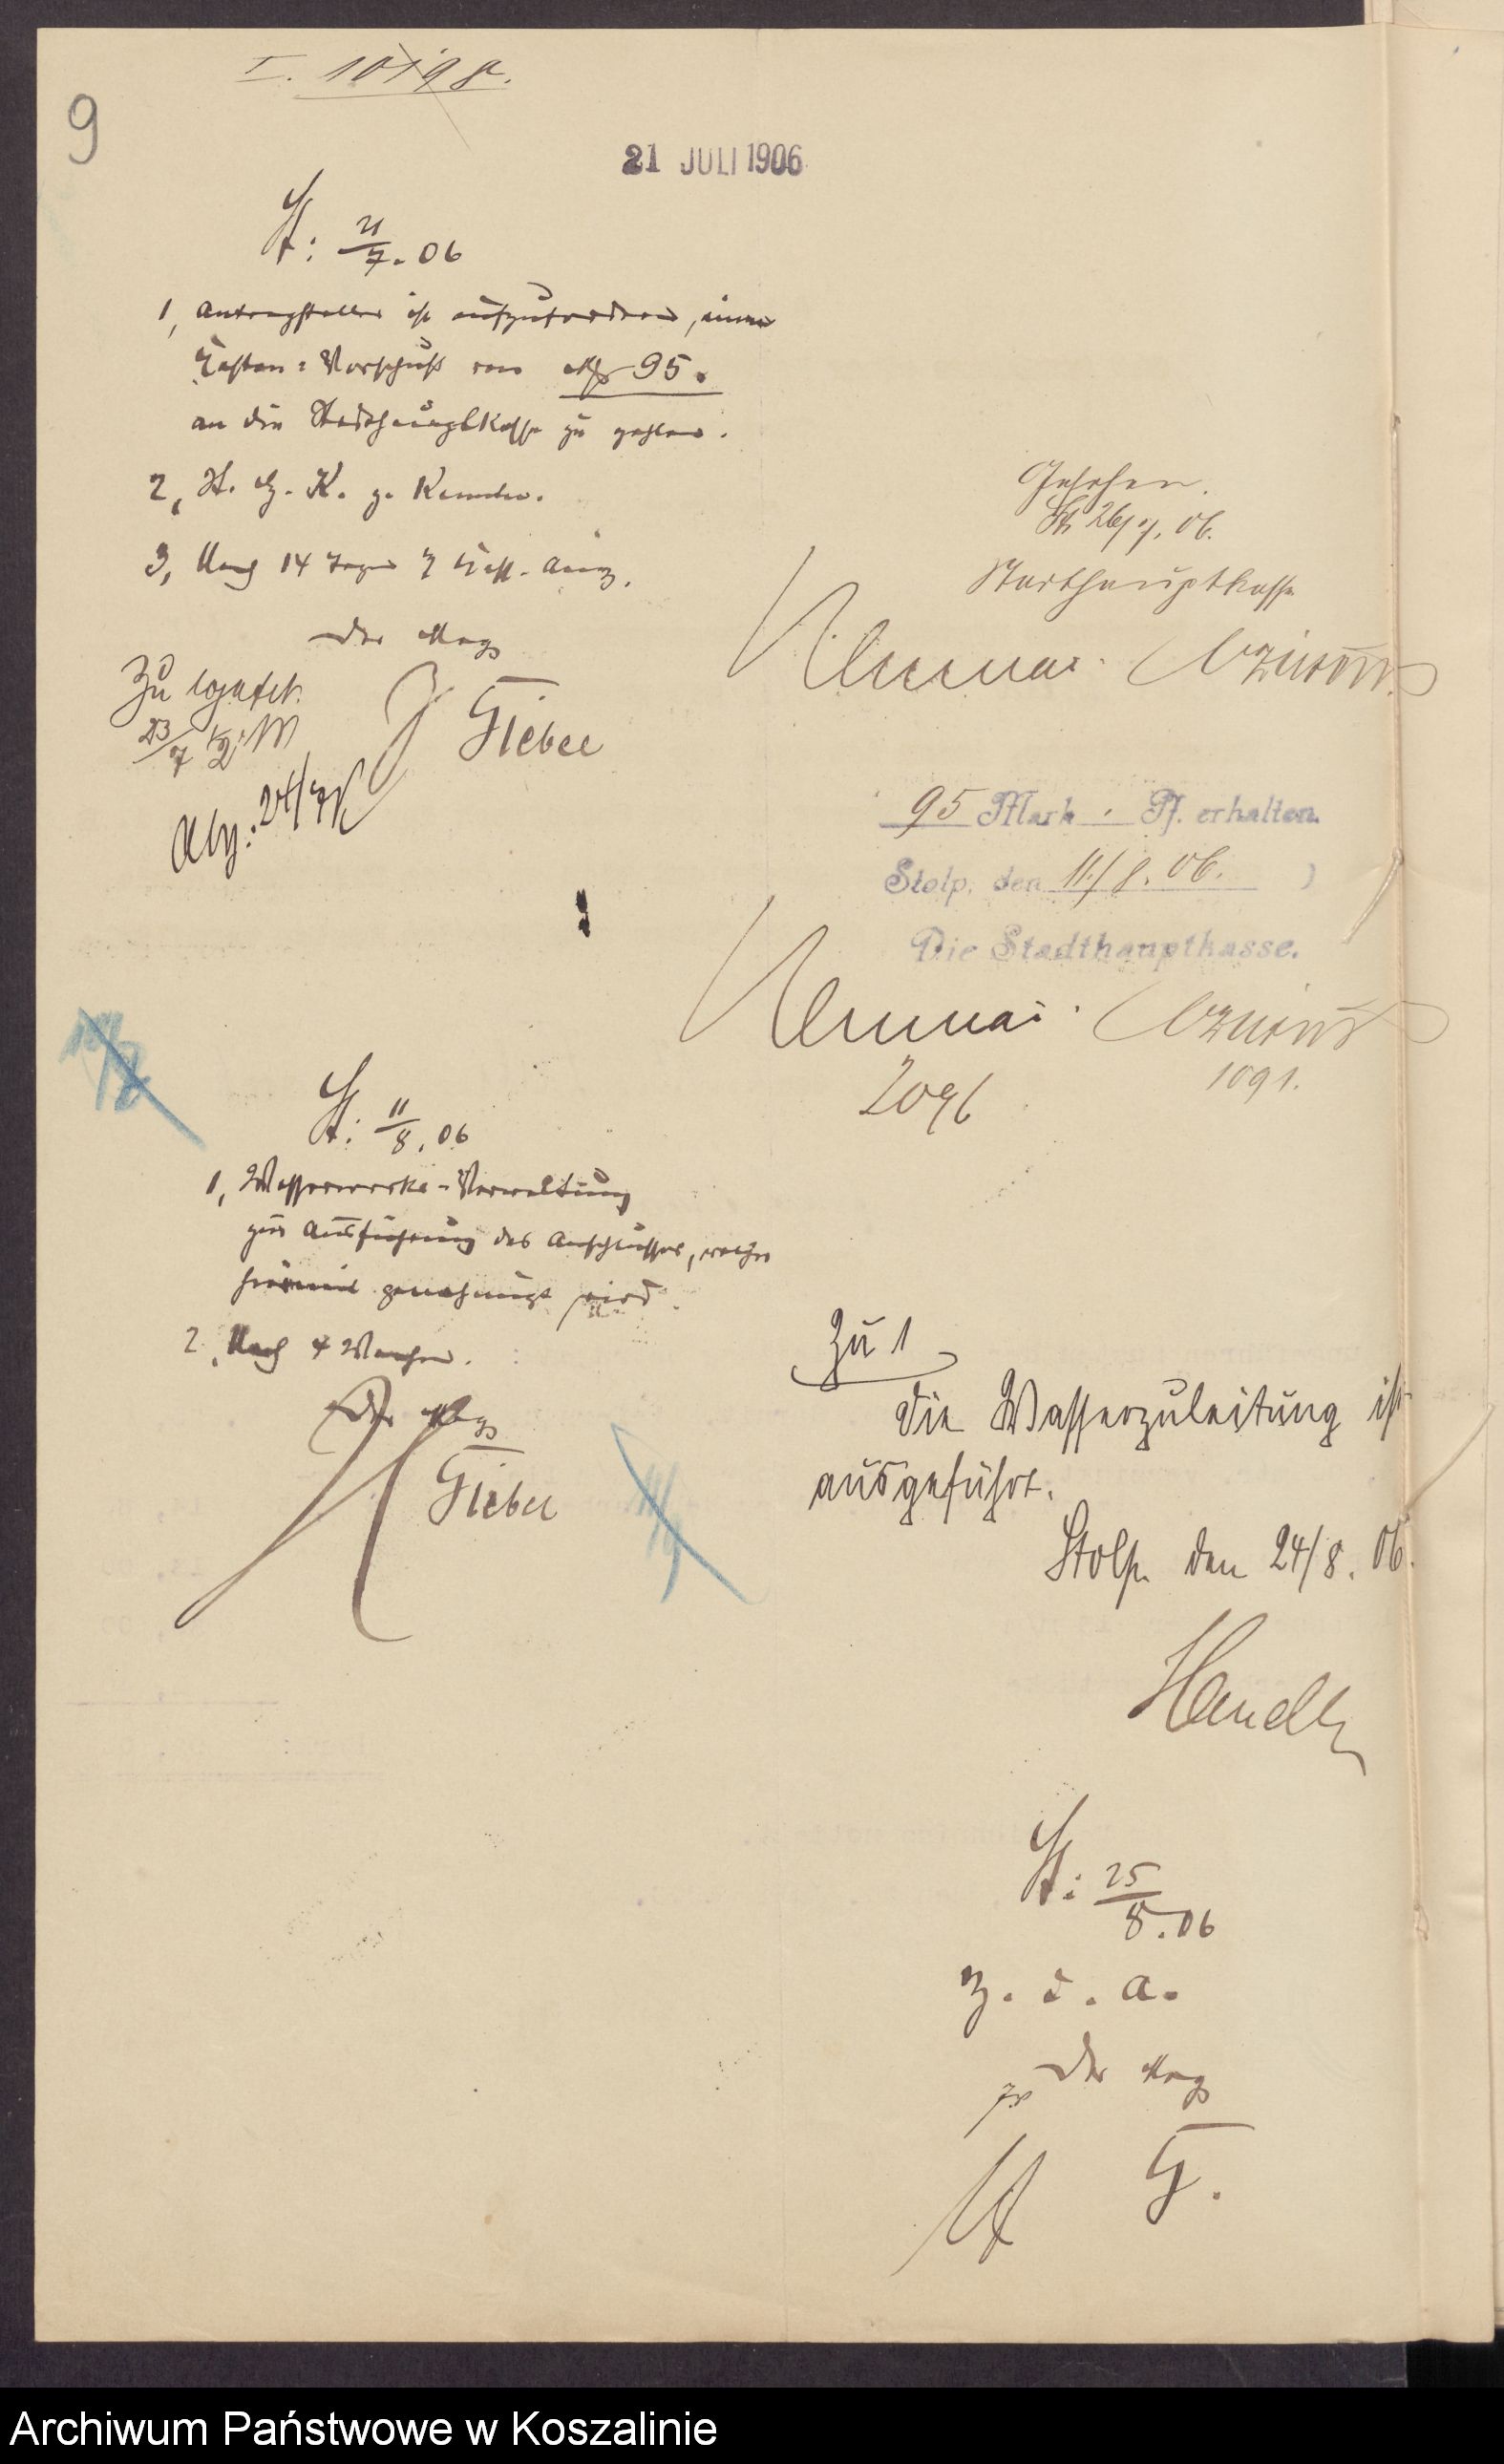 9
21 JULI 1906
St: 21/7. 06
1, Antragsteller ist aufzufordern, einen
Kosten-Vorschuß von M 95.
an die Stadthauptkasse zu zahlen.
2, St. H. K. z. Kenntn.
3, Nach 14 Tagen
Der Mag
Gieber
Zu 1 gefert.
23/7
Abg: 24/7
Gesehen.
St. 26/7. 06.
Stadthauptkasse
95 Mark . Pf. erhalten.
Stolp, den 11/8. 06.
Die Stadthauptkasse.
2096
1091.
St: 11/8. 06
1, Wasserwerks-Verwaltung
zur Ausführung des Anschlusses, welcher
hiermit genehmigt wird.
2, Nach 4 Wochen.
Der Mag
Gieber
Zu 1
Die Wasserzuleitung ist
ausgeführt.
Stolp den 24/8. 06.
St: 25/8. 06
z. d. A.
Der Mag
G.
Archiwum Państwowe w Koszalinie